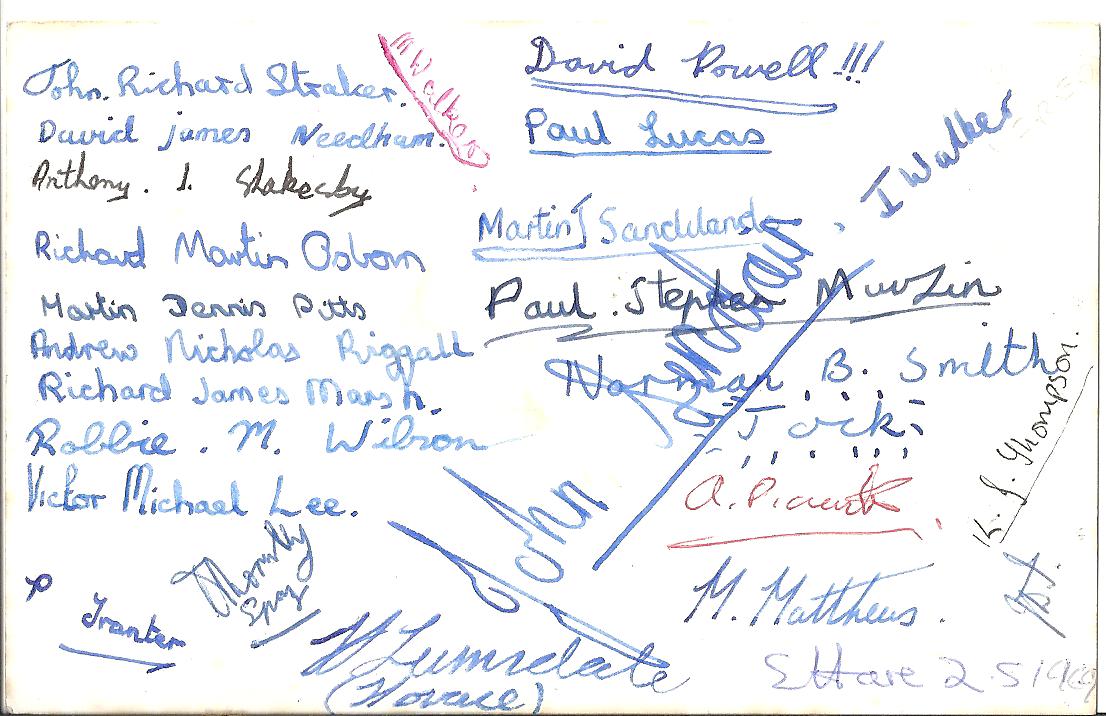 John. Richard Straker.
David james Needham.
Anthony. J. Shakesby
Richard Martin Osborn
Martin Dennis Pitts
Andrew Nicholas Riggall
Richard James Marsh.
Robbie. M. Wilson
Victor Michael Lee.
M Walker
David Powell !!!
Paul Lucas
I Walker
Martin J Sanddlands
Paul. Stephen
Norman B. Smith
"Jock"
John
K. J. Thompson.
M. Matthews.
P Tranter
W Lumsdale
(Horace)
2.5 1969